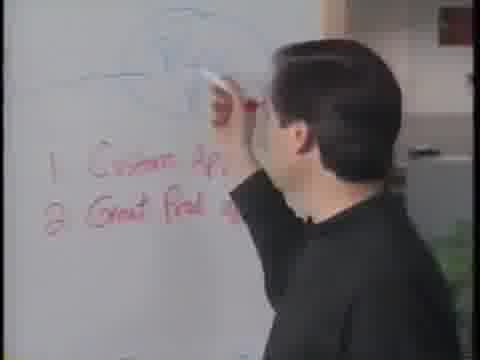 1 Custom Ap
2 Great Prod a